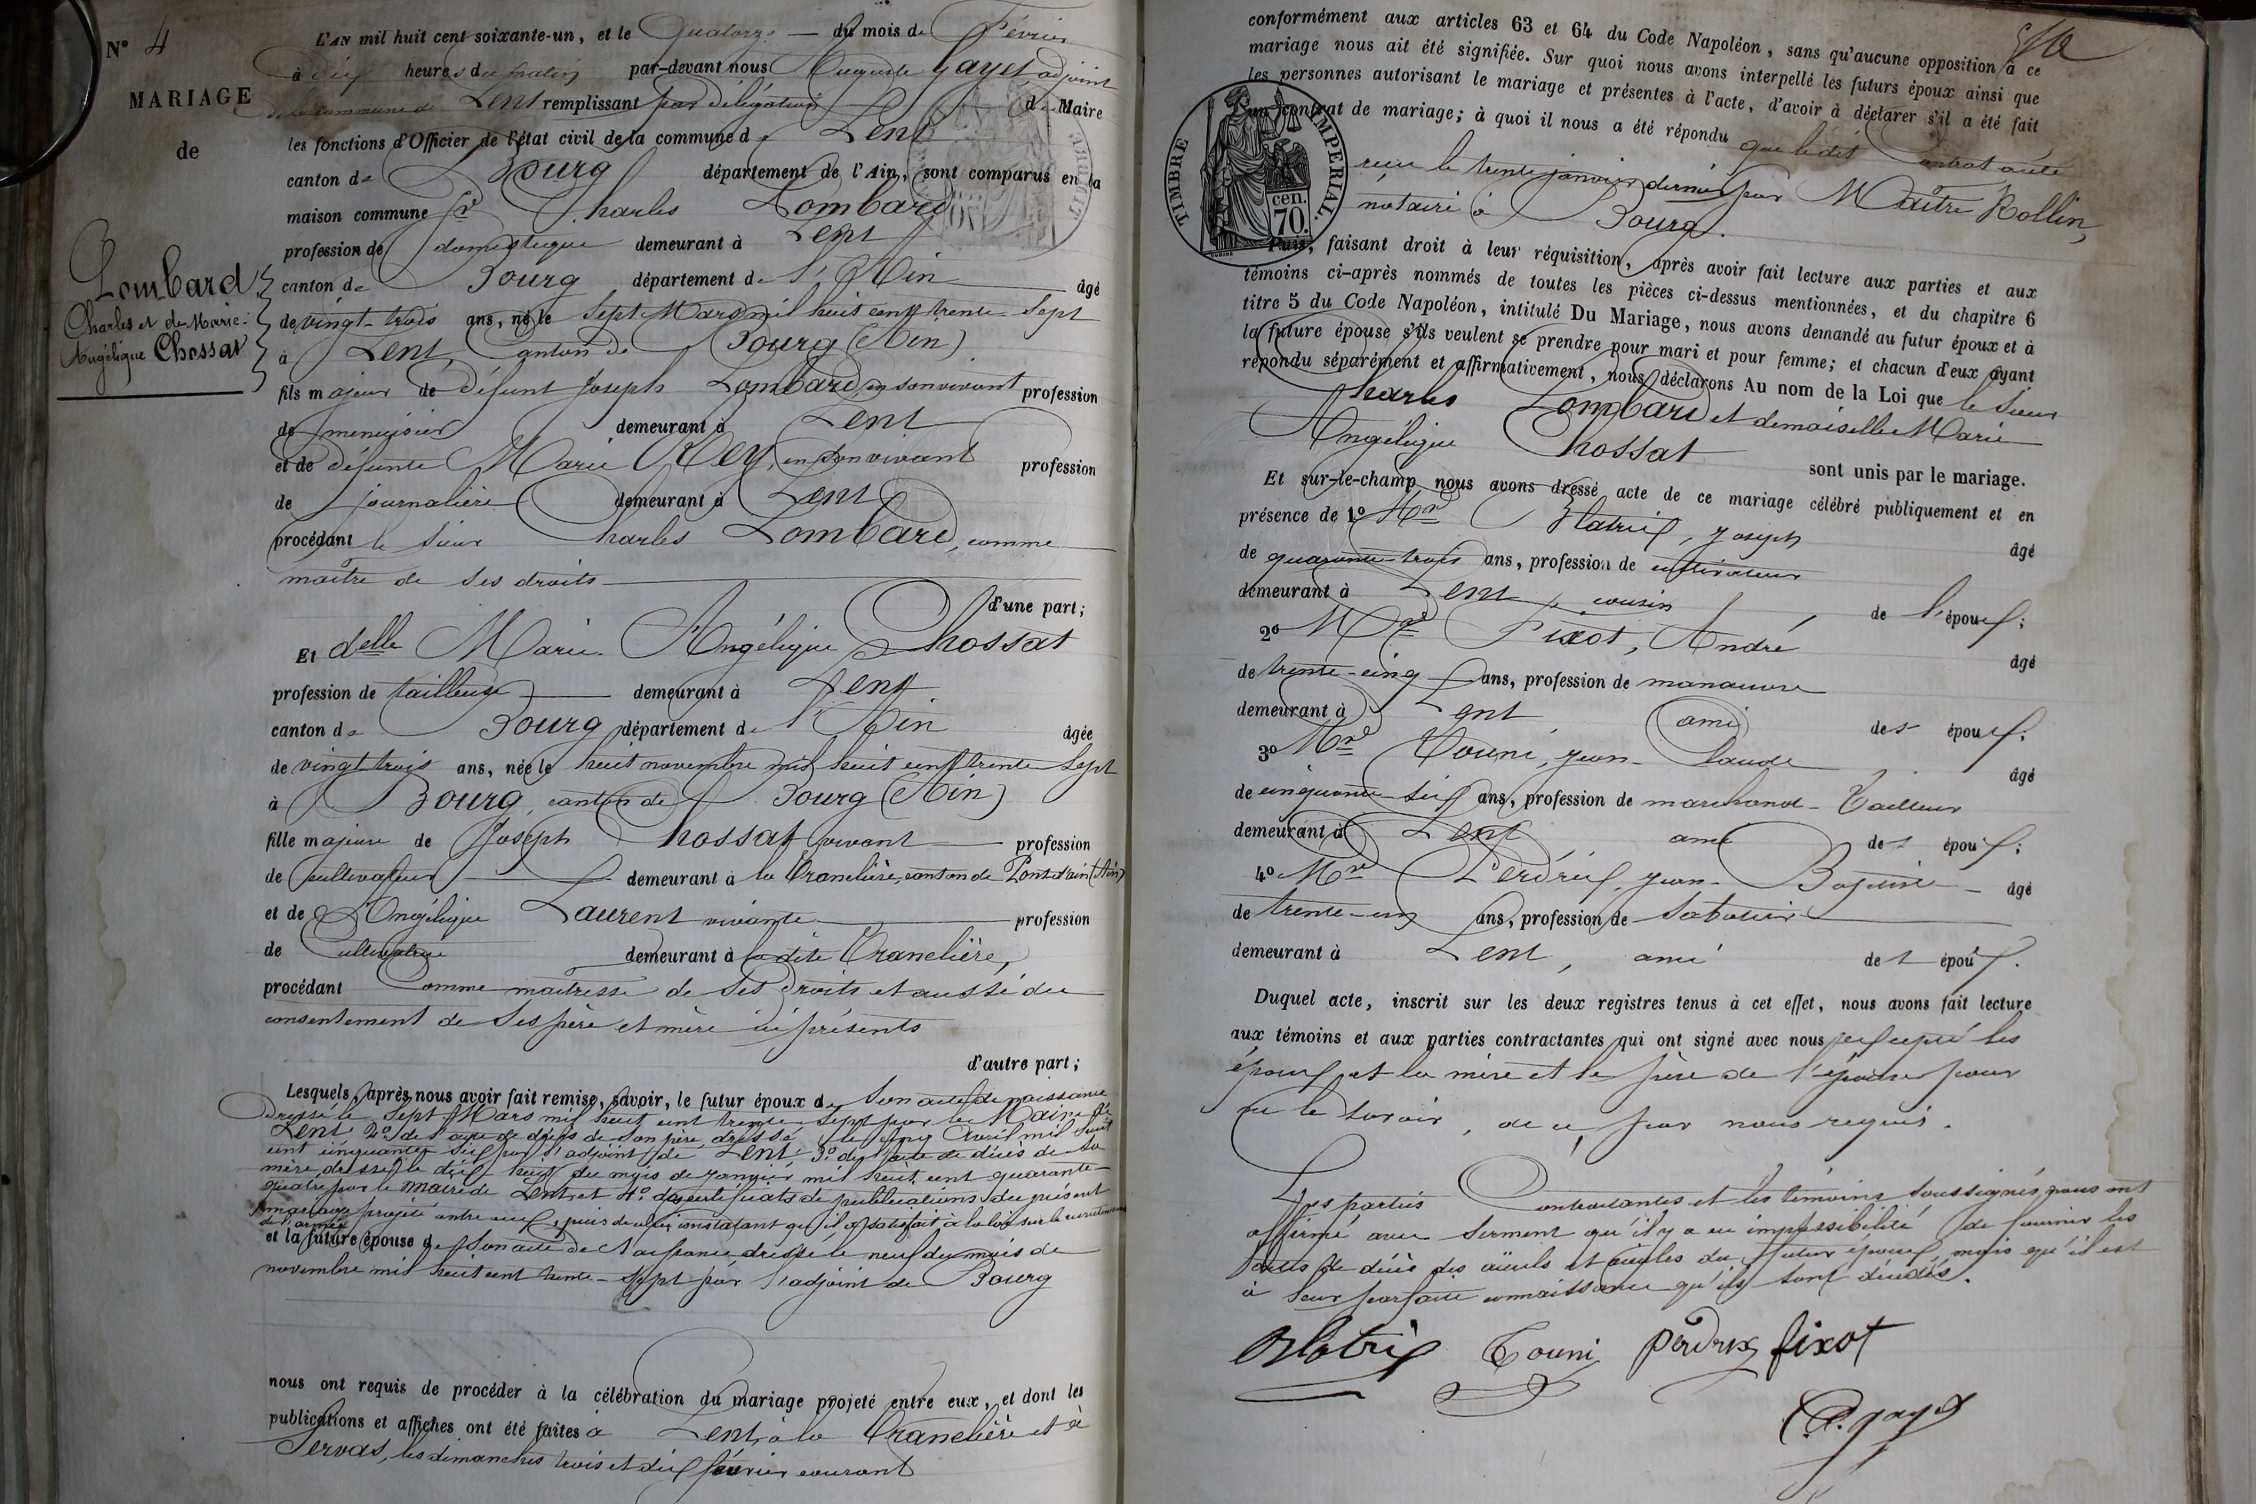 N° 4
MARIAGE
de
Lombard
Charles et de Marie-
Angélique Chossat
L'AN mil huit cent soixante-un, et le Quatorze du mois de Février
à dix heures du matin par-devant nous Auguste Gayet adjoint
de la commune de Lent remplissant par délégation d Maire
les fonctions d'Officier de l'état civil de la commune de Lent
canton de Bourg département de l'Ain, sont comparus en la
maison commune Sr Charles Lombard
profession de domestique demeurant à Lent
canton de Bourg département de l'Ain âgé
de vingt-trois ans, né le Sept Mars mil huit cent trente-sept
à Lent, Canton de Bourg (Ain)
fils majeur de défunt Joseph Lombard, en son vivant profession
de menuisier demeurant à Lent
et de défunte Marie Rey, en son vivant profession
de journalière demeurant à Lent
procédant le sieur Charles Lombard, comme
maître de ses droits
d'une part;
Et delle Marie Angélique Chossat
profession de tailleuse demeurant à Lent
canton de Bourg département de l'Ain âgée
de vingt trois ans, née le huit novembre mil huit cent trente sept
à Bourg, canton de Bourg (Ain)
fille majeure de Joseph Chossat vivant profession
de cultivateur demeurant à la Tranclière, canton de Pont d'ain (Ain)
et de Angélique Laurent vivante profession
de Cultivatrice demeurant à la dite Tranclière,
procédant Comme maîtresse de ses droits et aussi du
consentement de ses père et mère ici présents
d'autre part;
Lesquels, après nous avoir fait remise, savoir, le futur époux de Son acte de naissance
dressé le Sept Mars mil huit cent trente sept par le Maire de
Lent 2° de l'acte de décès de son père, dressé le cinq Avril mil huit
cent cinquante six par l'adjoint de Lent 3° de l'acte de décès de sa
mère, dressé le dix huit du mois de janvier mil huit cent quarante-
quatre par le maire de Lent et 4° des certificats de publications du présent
mariage projeté entre eux, puis de celui constatant qu'il a satisfait à la loi sur le recrutement
de l'armée
et la future épouse de son acte de Naissance, dressé le neuf du mois de
novembre mil huit cent trente-sept par l'adjoint de Bourg
nous ont requis de procéder à la célébration du mariage projeté entre eux, et dont les
publications et affiches ont été faites à Lent, à la Tranclière et à
Servas, les dimanches trois et dix février courant
conformément aux articles 63 et 64 du Code Napoléon, sans qu'aucune opposition à ce
mariage nous ait été signifiée. Sur quoi nous avons interpellé les futurs époux ainsi que
les personnes autorisant le mariage et présentes à l'acte, d'avoir à déclarer s'il a été fait
un contrat de mariage; à quoi il nous a été répondu que le dit Contrat a été
reçu le trente janvier dernier par Maître Rollin,
notaire à Bourg.
TIMBRE IMPERIAL.
cen.
70.
Puis, faisant droit à leur réquisition, après avoir fait lecture aux parties et aux
témoins ci-après nommés de toutes les pièces ci-dessus mentionnées, et du chapitre 6
titre 5 du Code Napoléon, intitulé Du Mariage, nous avons demandé au futur époux et à
la future épouse s'ils veulent se prendre pour mari et pour femme; et chacun d'eux ayant
répondu séparément et affirmativement, nous déclarons Au nom de la Loi que le Sieur
Charles Lombard et demoiselle Marie
Angélique Chossat
sont unis par le mariage.
Et sur-le-champ nous avons dressé acte de ce mariage célébré publiquement et en
présence de 1° Mr Blatrix, Joseph âgé
de quarante-trois ans, profession de cultivateur
demeurant à Lent, cousin de l'époux;
2° Mr Fixot, André âgé
de trente-cinq ans, profession de manœuvre
demeurant à Lent ami des époux;
3° Mr Touni, Jean-Claude âgé
de cinquante-six ans, profession de marchand-Tailleur
demeurant à Lent ami des époux;
4° Mr Perdrix, Jean-Baptiste âgé
de trente-un ans, profession de sabotier
demeurant à Lent, ami des époux.
Duquel acte, inscrit sur les deux registres tenus à cet effet, nous avons fait lecture
aux témoins et aux parties contractantes qui ont signé avec nous, excepté les
époux, et la mère et le père de l'épouse pour
ne le savoir, de ce, par nous requis.
Les parties Contractantes et les témoins soussignés, nous ont
affirmé avec serment qu'il y a eu impossibilité de fournir les
actes de décès des aïeuls et aïeules du futur époux, mais qu'il est
à leur parfaite connaissance qu'ils sont décédés.
Blatrix Touni perdrix fixot
A. gayet